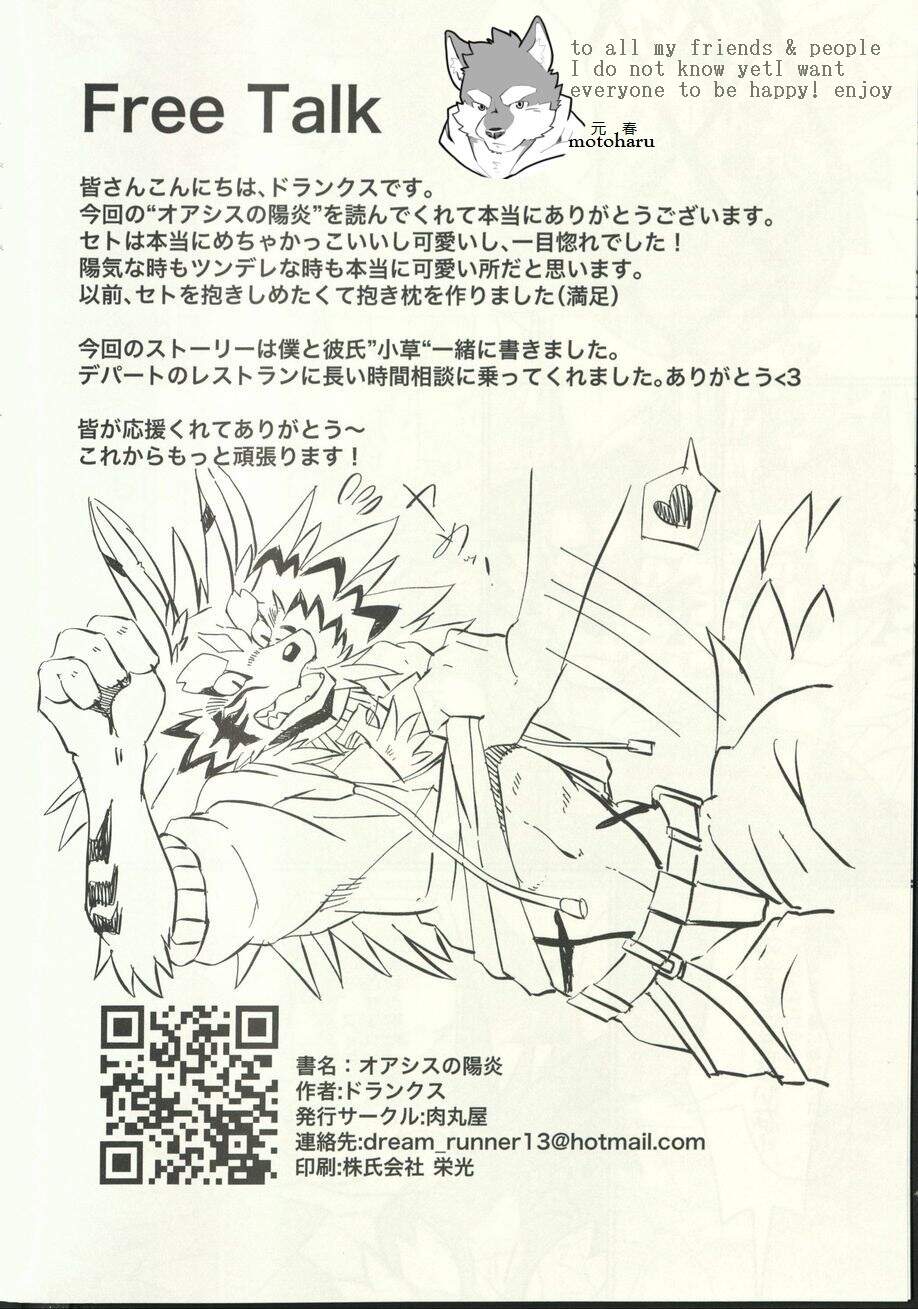 Free Talk
to all my friends & people
I do not know yetI want
everyone to be happy! enjoy
元春
motoharu
皆さんこんにちは、ドランクスです。
今回の“オアシスの陽炎”を読んでくれて本当にありがとうございます。
セトは本当にめちゃかっこいいし可愛いし、一目惚れでした！
陽気な時もツンデレな時も本当に可愛い所だと思います。
以前、セトを抱きしめたくて抱き枕を作りました（満足）
今回のストーリーは僕と彼氏”小草“一緒に書きました。
デパートのレストランに長い時間相談に乗ってくれました。ありがとう<3
皆が応援くれてありがとう～
これからもっと頑張ります！
書名：オアシスの陽炎
作者:ドランクス
発行サークル:肉丸屋
連絡先:dream_runner13@hotmail.com
印刷:株氏会社 栄光